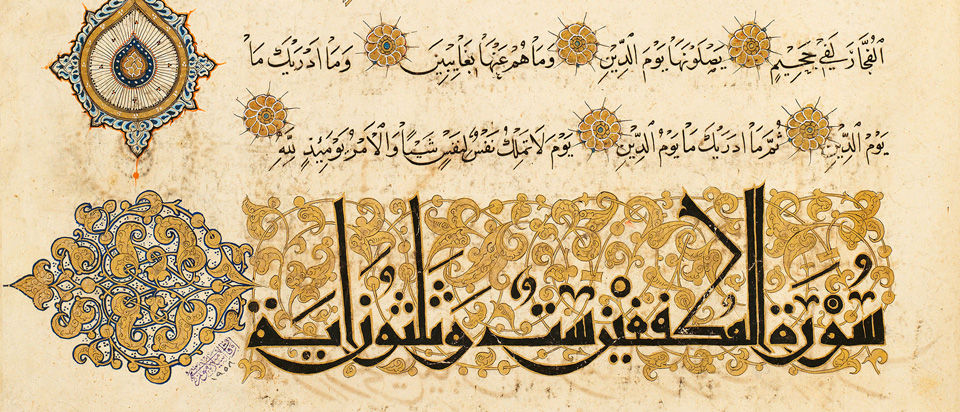 الْفُجَّارَ لَفِي جَحِيمٍ يَصْلَوْنَهَا يَوْمَ الدِّينِ وَمَا هُمْ عَنْهَا بِغَايِبِينَ وَمَا اَدْرَيكَ مَا
يَوْمُ الدِّينِ ثُمَّ مَا اَدْرَيكَ مَا يَوْمُ الدِّينِ يَوْمَ لَا تَمْلِكُ نَفْسٌ لِنَفْسٍ شَيْئًا وَالْاَمْرُ يَوْمَئِذٍ لِلّٰهِ
سُوْرَةُ المطففين ستٌّ وَثَلٰثُوْنَ اٰيَة